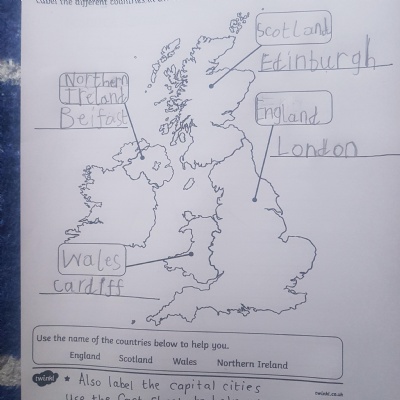 Label the different countries in
Scotland
Edinburgh
Northern
Ireland
Belfast
England
London
Wales
Cardiff
Use the name of the countries below to help you.
England Scotland Wales Northern Ireland
twinkl
twinkl.co.uk
* Also label the capital cities
Use the